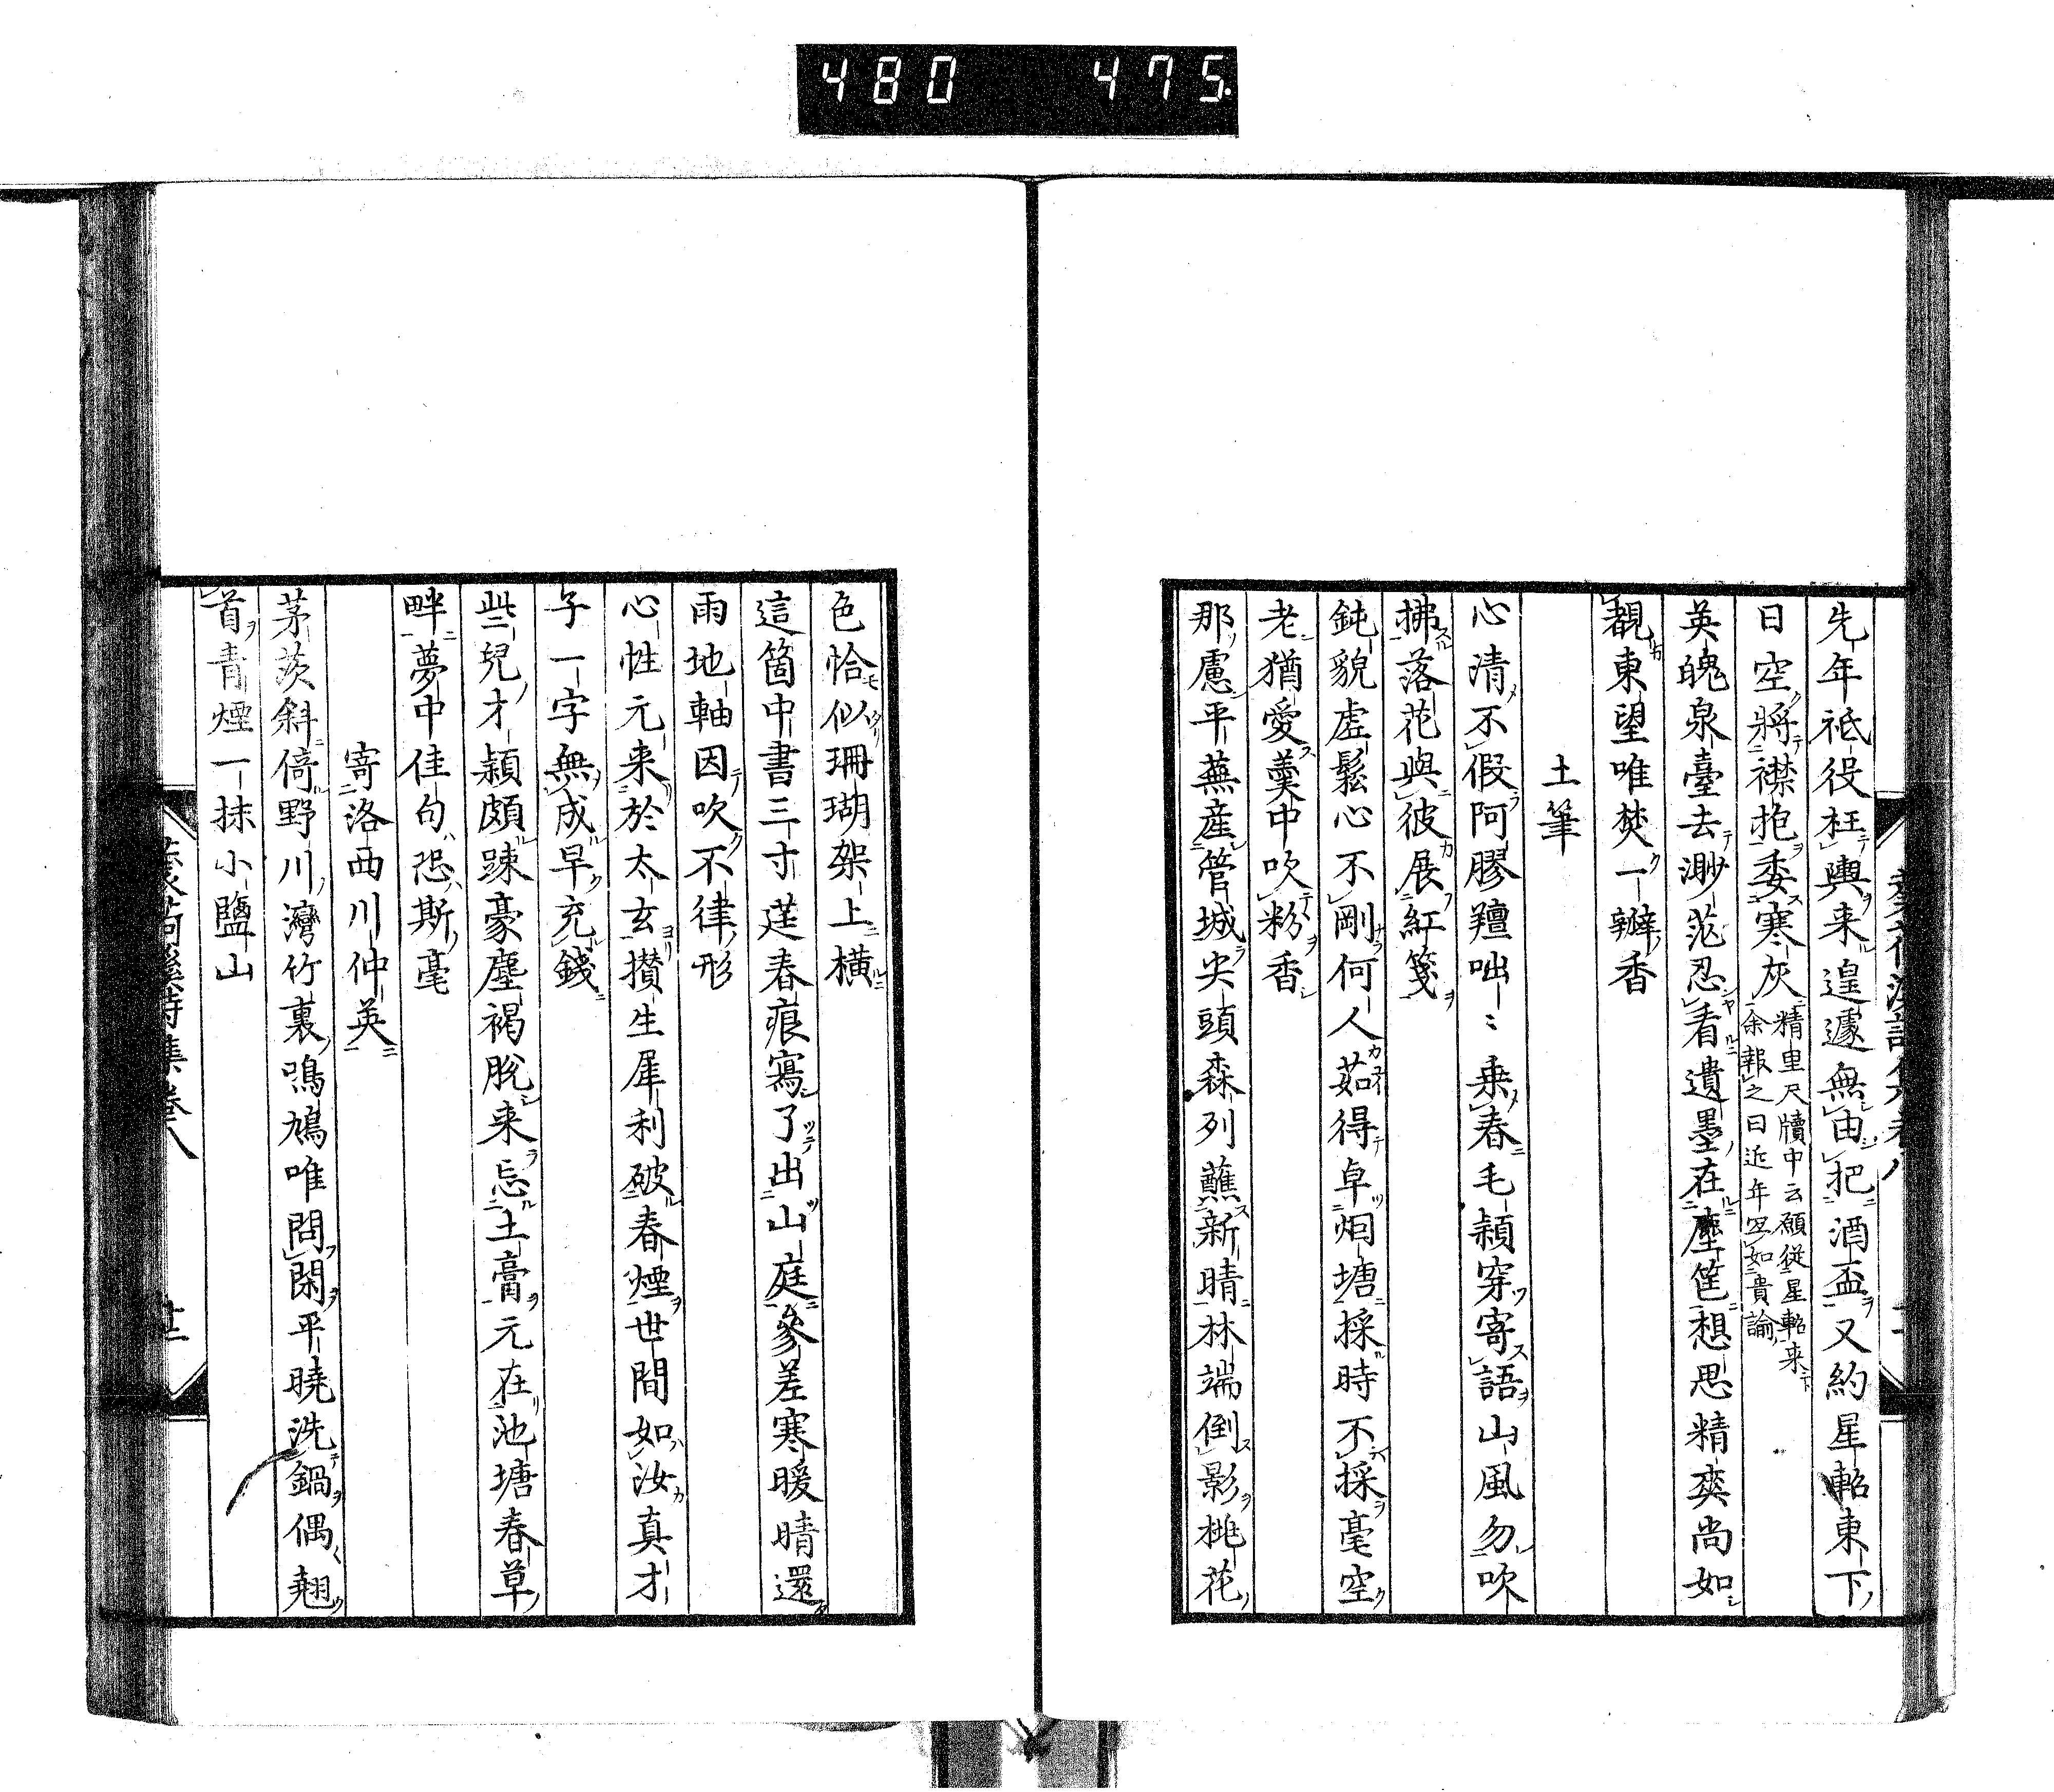 480 475
先年祗役枉輿来遑遽無由把酒盃又約星軺東下
日空將襟抱委寒灰
精里尺牘中云願従星軺来下
余報之曰近年罕如貴諭
英魄泉臺去渺茫忍看遺墨在塵筐想思精爽尚如
覩東望唯焚一瓣香
土筆
心清不假阿膠羶咄〻乗春毛穎穿寄語山風勿吹
拂落花與彼展紅箋
鈍貌虚鬆心不剛何人茹得卓烟塘採時不採毫空
老猶愛羹中吹粉香
那慮平蕪産管城尖頭森列蘸新晴林端倒影桃花
色恰似珊瑚架上横
這箇中書三寸莛春痕寫了出山庭參差寒暖晴還
雨地軸因吹不律形
心性元来於太玄攅生犀利破春煙世間如汝真才
子一字無成早充錢
些兒才穎頗踈豪塵褐脱来忘土膏元在池塘春草
畔夢中佳句恐斯毫
寄洛西川仲英
茅茨斜倚野川灣竹裏鳴鳩唯問閑平曉洗鍋偶翹
首青煙一抹小鹽山
詩集巻八